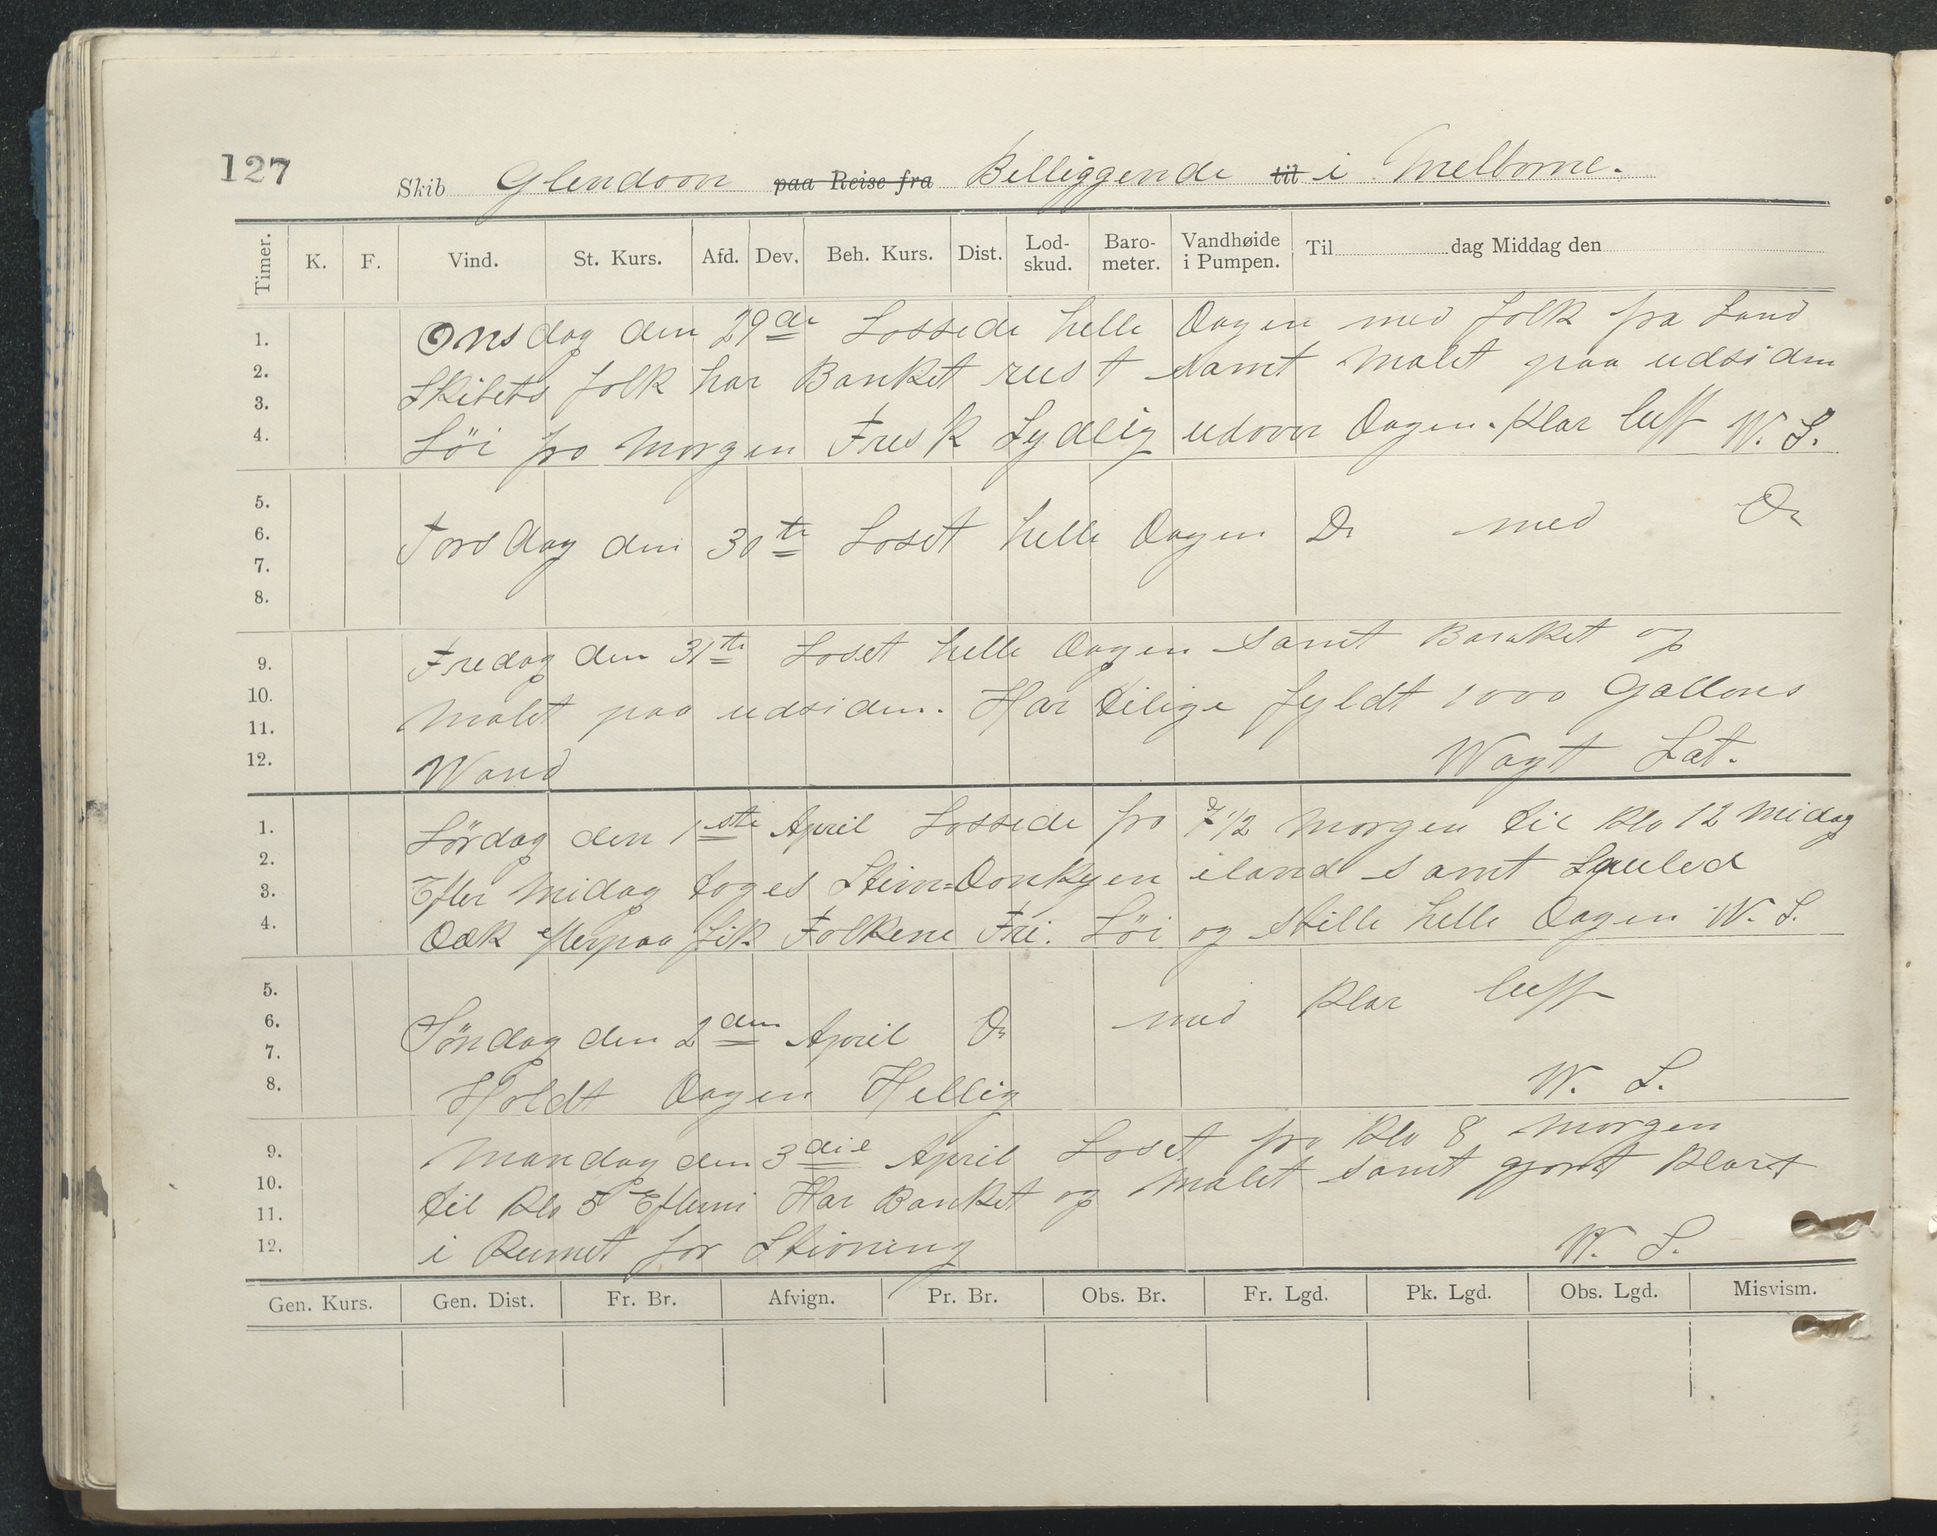 127
Skib Glendoon paa Reise fra Belliggende til i Melborne.
Timer. K. F. Vind. St. Kurs. Afd. Dev. Beh. Kurs. Dist. Lod-skud. Baro-meter. Vandhøide i Pumpen. Til dag Middag den
1. Onsdag den 29de Lossede helle Dagen med folk fra Land
2. Skibets folk har Banket rust samt Malet paa udsiden
3. Löi fra Morgen Frisk Sydlig udover Dagen. Klar luft W. L.
4.
5.
6. Torsdag den 30te Loset helle Dagen Do med Do
7.
8.
9. Fredag den 31te Loset helle Dagen samt Banket og
10. malet paa udsiden. Har tilige fyldt 1000 Gallons
11. Wand Wagt Lat.
12.
1. Lördag den 1ste April Lossede fra 7 1/2 Morgen til Klo 12 Midag
2. Efter Midag toges Stim=Donkyen iland samt Spuled
3. Dæk efterpaa fik Folkene Fri. Löi og stille helle Dagen W. L.
4.
5.
6. Söndag den 2den April Do med Klar luft
7. Holdt Dagen Hellig W. L.
8.
9. Mandag den 3die April Loset fra Klo 8 Morgen
10. til Klo 5 Eftermi Har Banket og Malet samt gjort Klart
11. i Rumet for Stivning W. L.
12.
Gen. Kurs. Gen. Dist. Fr. Br. Afvign. Pr. Br. Obs. Br. Fr. Lgd. Pk. Lgd. Obs. Lgd. Misvism.